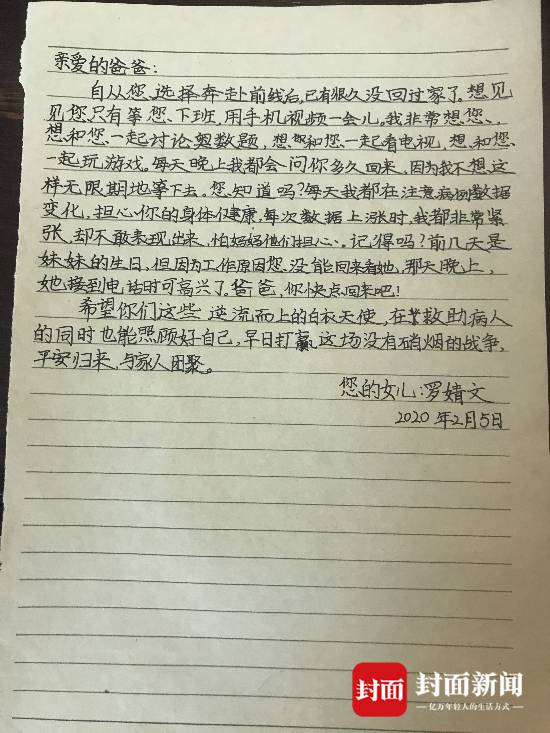 亲爱的爸爸：
自从您选择奔赴前线后，已有很久没回过家了。想见
见您只有等您下班，用手机视频一会儿，我非常想您、
想和您一起讨论奥数题，想您和您一起看电视，想和您
一起玩游戏。每天晚上我都会问你多久回来，因为我不想这
样无限期地等下去。您知道吗？每天我都在注意病例数据
变化，担心你的身体健康，每次数据上涨时，我都非常紧
张，却不敢表现出来，怕妈妈他们担心。记得吗？前几天是
妹妹的生日，但因为工作原因您没能回来看她，那天晚上，
她接到电话时可高兴了。爸爸，你快点回来吧！
希望你们这些逆流而上的白衣天使，在救助病人
的同时也能照顾好自己，早日打赢这场没有硝烟的战争，
平安归来，与家人团聚。
您的女儿：罗婧文
2020年2月5日
封面 封面新闻
亿万年轻人的生活方式